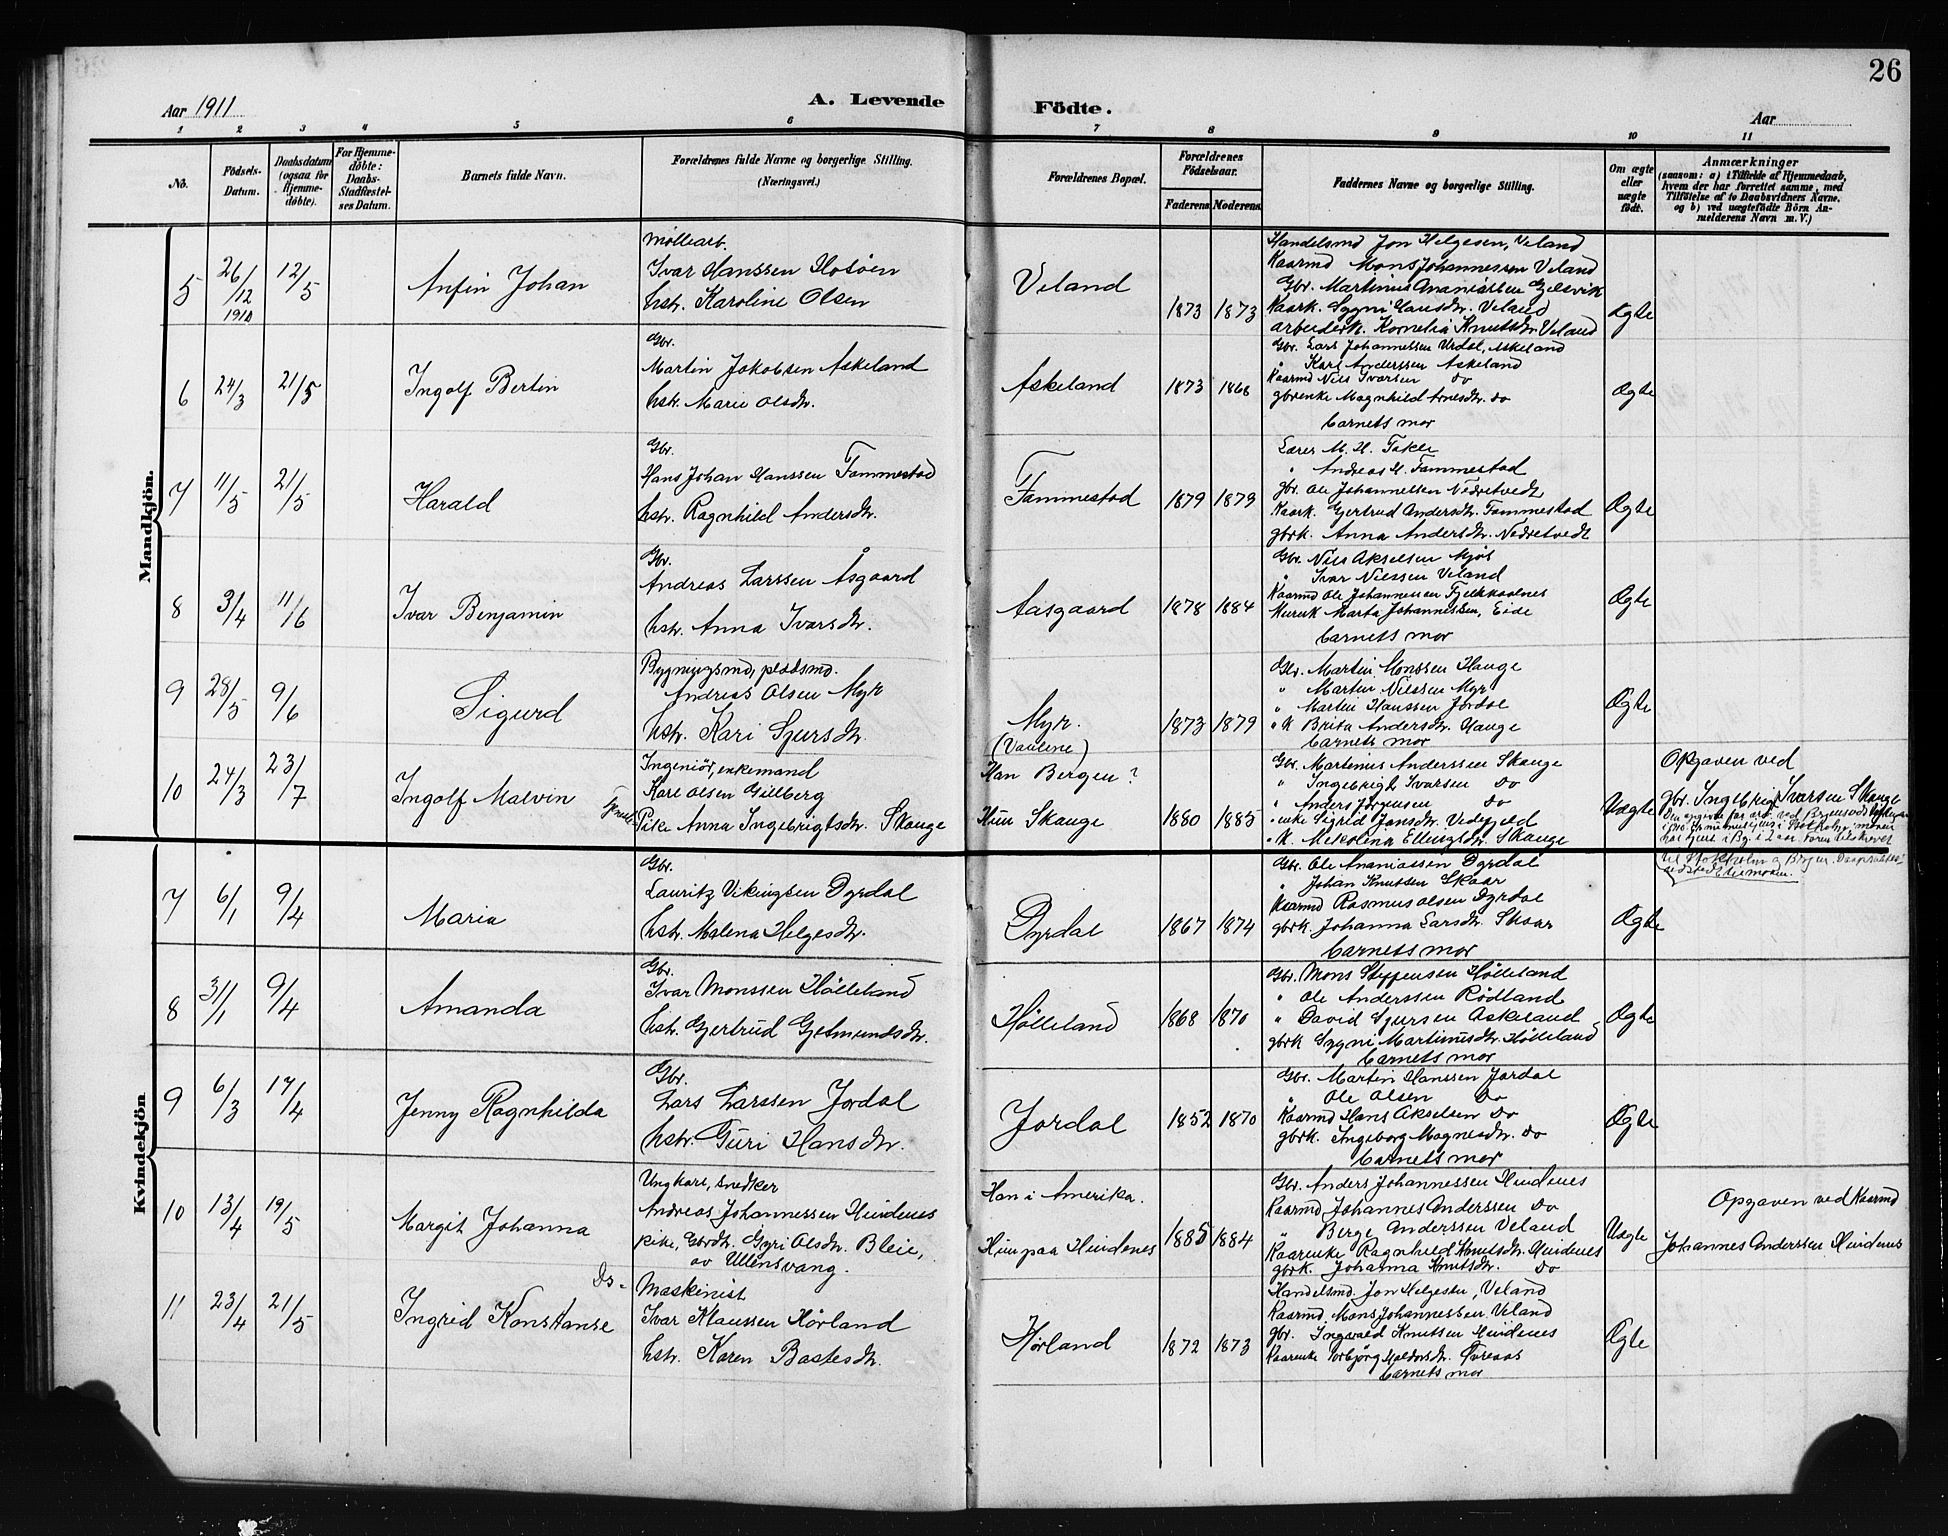 26
Aar 1911
A. Levende Födte.
Aar
1 2 3 4 5 6 7 8 9 10 11
No.
Födsels-Datum.
Daabsdatum (ogsaa for Hjemme-döbte).
For Hjemme-döbte: Daabs-Stadfæstel-ses Datum.
Barnets fulde Navn.
Forældrenes fulde Navne og borgerlige Stilling.
(Næringsvei.)
Forældrenes Bopæl.
Forældrenes Födselsaar.
Faderens Moderens
Faddernes Navne og borgerlige Stilling.
Om ægte eller uægte födt.
Anmærkninger
(saasom: a) i Tilfælde af Hjemmedaab,
hvem der har forrettet samme, med
Tilföielse af to Daabsvidners Navne,
og b) ved uægtefödte Börn An-
melderens Navn m. V.)
Mandkjön.
5 26/12 1910 12/5 Anfin Johan
Møllearb.
Ivar Hanssen Hosöen
hstr. Karoline Olsen
Veland 1873 1873
Handelsmd Jon Helgesen, Veland
Kaarmd Mons Johannessen Veland
Gbr. Martinus Ananiassen Gjelsvik
Kaark. Sygni Hansdtr. Veland
arbeiderk. Kornelia Knutsdtr. Veland
Ægte
6 24/3 21/5 Ingolf Bertin
Gbr.
Martin Jakobsen Askeland
hstr. Marie Olsdtr.
Askeland 1873 1868
Gbr. Lars Johannessen Urdal, Askeland
" Karl Anderssen Askeland
Kaarmd Nils Ivarsen do
gbrenke Magnhild Arnesdtr. do
barnets mor
Ægte
7 11/5 21/5 Harald
Gbr.
Hans Johan Hanssen Tammestad
hstr. Ragnhild Andersdtr.
Tammestad 1879 1879
Lærer M. H. Takle
" Andreas H. Tammestad
gbr. Ole Johannessen Nedretvedt
Kaark. Gjertrud Andersdtr. Tammestad
gbrk. Anna Andersdtr. Nedretvedt
Ægte
8 3/4 11/6 Ivar Benjamin
Gbr.
Andreas Larssen Åsgaard
hstr. Anna Ivarsdtr.
Aasgaard 1878 1884
Gbr. Nils Akselsen Mjøs
" Ivar Nielssen Veland
Kaarmd Ole Johannessen
Marta Johannessen, Eide
barnets mor
Ægte
9 28/5 9/6 Sigurd
Bygningsmd, pladsmd.
Andreas Olsen Myr
hstr. Kari Sjursdtr.
Myr. 1873 1879
(Vaulene)
Gbr. Martin Monssen Hauge
" Martin Nielssen Myr
" Martin Hanssen Jordal
" K Brita Andersdtr. Hauge
barnets mor
Ægte
10 24/3 23/7 Ingolf Malvin
Ingeniör, enkemand
Karl Olsen Gillberg
Pike Anna Ingebrigtsdtr. Skauge
Han Bergen?
Hun Skauge 1880 1885
Gbr. Martinus Anderssen Skauge
" Ingebrigt Ivarsen do
" Anders Jørgensen do
" enke Sigrid Jonsdtr.
" K. Mekoline Ellingsdtr. Skauge
Uægte
Opgaven ved
gbr. Ingebrigt Ivarsen Skauge
Kvindekjön
7 6/1 9/4 Maria
Gbr.
Lauritz Vikingsen Dyrdal
hstr. Malena Helgesdtr.
Dyrdal 1867 1874
Gbr. Ole Ananiassen Dyrdal
" Johan Knutsen Skaar
Kaarmd Rasmus Olsen Dyrdal
gbrk. Johanna Larsdtr. Skaar
barnets mor
Ægte
8 31/1 9/4 Amanda
Gbr.
Ivar Monssen Hølleland
hstr. Gjertrud Gjetmundsdtr.
Hølleland 1868 1870
Gbr. Mons Steffensen Hølleland
" Ole Anderssen Rødland
" David Sjursen Askeland
gbrk Sygni Martinusdtr. Hølleland
barnets mor
Ægte
9 6/3 17/4 Jenny Ragnhilda
Gbr.
Lars Larssen Jordal
hstr. Guri Hansdtr.
Jordal 1852 1870
Gbr. Martin Hanssen Jordal
" Ole Olsen do
Kaarmd Hans Akselsen do
gbrk. Ingeborg Magnesdtr. do
barnets mor
Ægte
10 13/4 19/5 Margit Johanna
Ungkarl, snedker
Andreas Johannessen Hindenes
pike, Gbrdtr. Gyri Olsdtr. Bleie,
av Ullensvang.
Han i Amerika.
Hun paa Hindenes 1885 1884
Gbr. Anders Johannessen Hindenes
Kaarmd Johannes Anderssen do
" Berge Anderssen Veland
Kaarenke Ragnhild Knutsdtr. Hindenes
gbrk. Johanna Knutsdtr. do
Uægte
Opgaven ved Kaarmd
Johannes Anderssen Hindenes
11 23/4 21/5 Ingrid Konstanse
Maskinist
Ivar Klaussen Hørland
hstr. Karen Bastesdtr.
Hørland 1872 1873
Handelsmd. Jon Helgesen, Veland
Kaarmd. Mons Johannessen Veland
gbr. Ingvald Knutsen Hindenes
Kaarenke Torbjørg Haldorsdtr. Øvreaas
barnets mor
Ægte